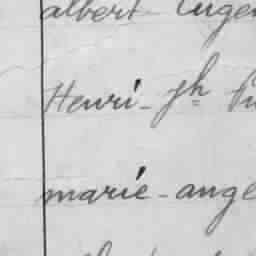 albert - Eugen
Henri - Jh
marie - ange